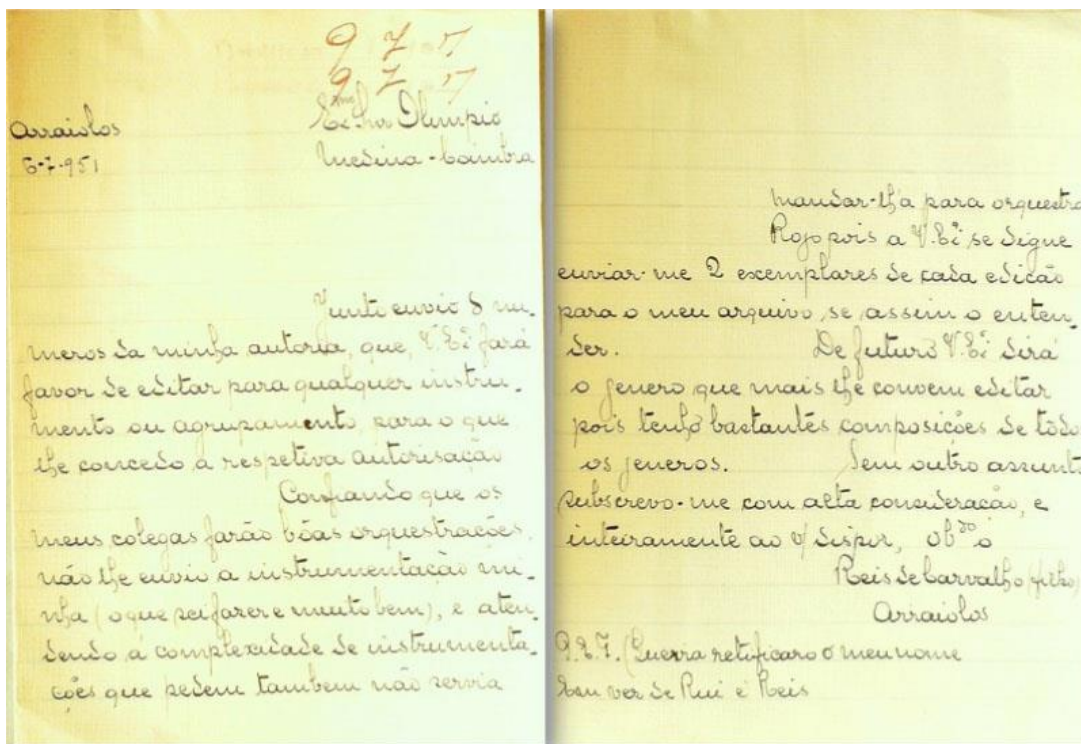 9 7 7
9 7 7
Arraiolos
6-7-951
Olimpio
Medina - Coimbra
Junto envio 8 nu-
meros da minha autoria, que, V. Exª fará
favor de editar para qualquer instru-
mento ou agrupamento, para o que
lhe concedo a respetiva autorisação
Confiando que os
meus colegas farão bôas orquestrações,
não lhe envio a instrumentação mi-
nha (o que sei fazer e muito bem), e aten-
dendo á complexidade de instrumenta-
ções que pedem tambem não servia
mandar-lh'a para orquestra
Rogo pois a V. Exª se digne
enviar-me 2 exemplares de cada edição
para o meu arquivo, se assim o enten-
der. De futuro V. Exª dirá
o jenero que mais lhe convem editar
pois tenho bastantes composições de tôdos
os jeneros. Sem outro assunto
subscrevo-me com alta consideração, e
inteiramente ao v/ dispor, obᵈᵒ
Reis de Carvalho (filho)
Arraiolos
o meu nome
Em vez de Rui é Reis